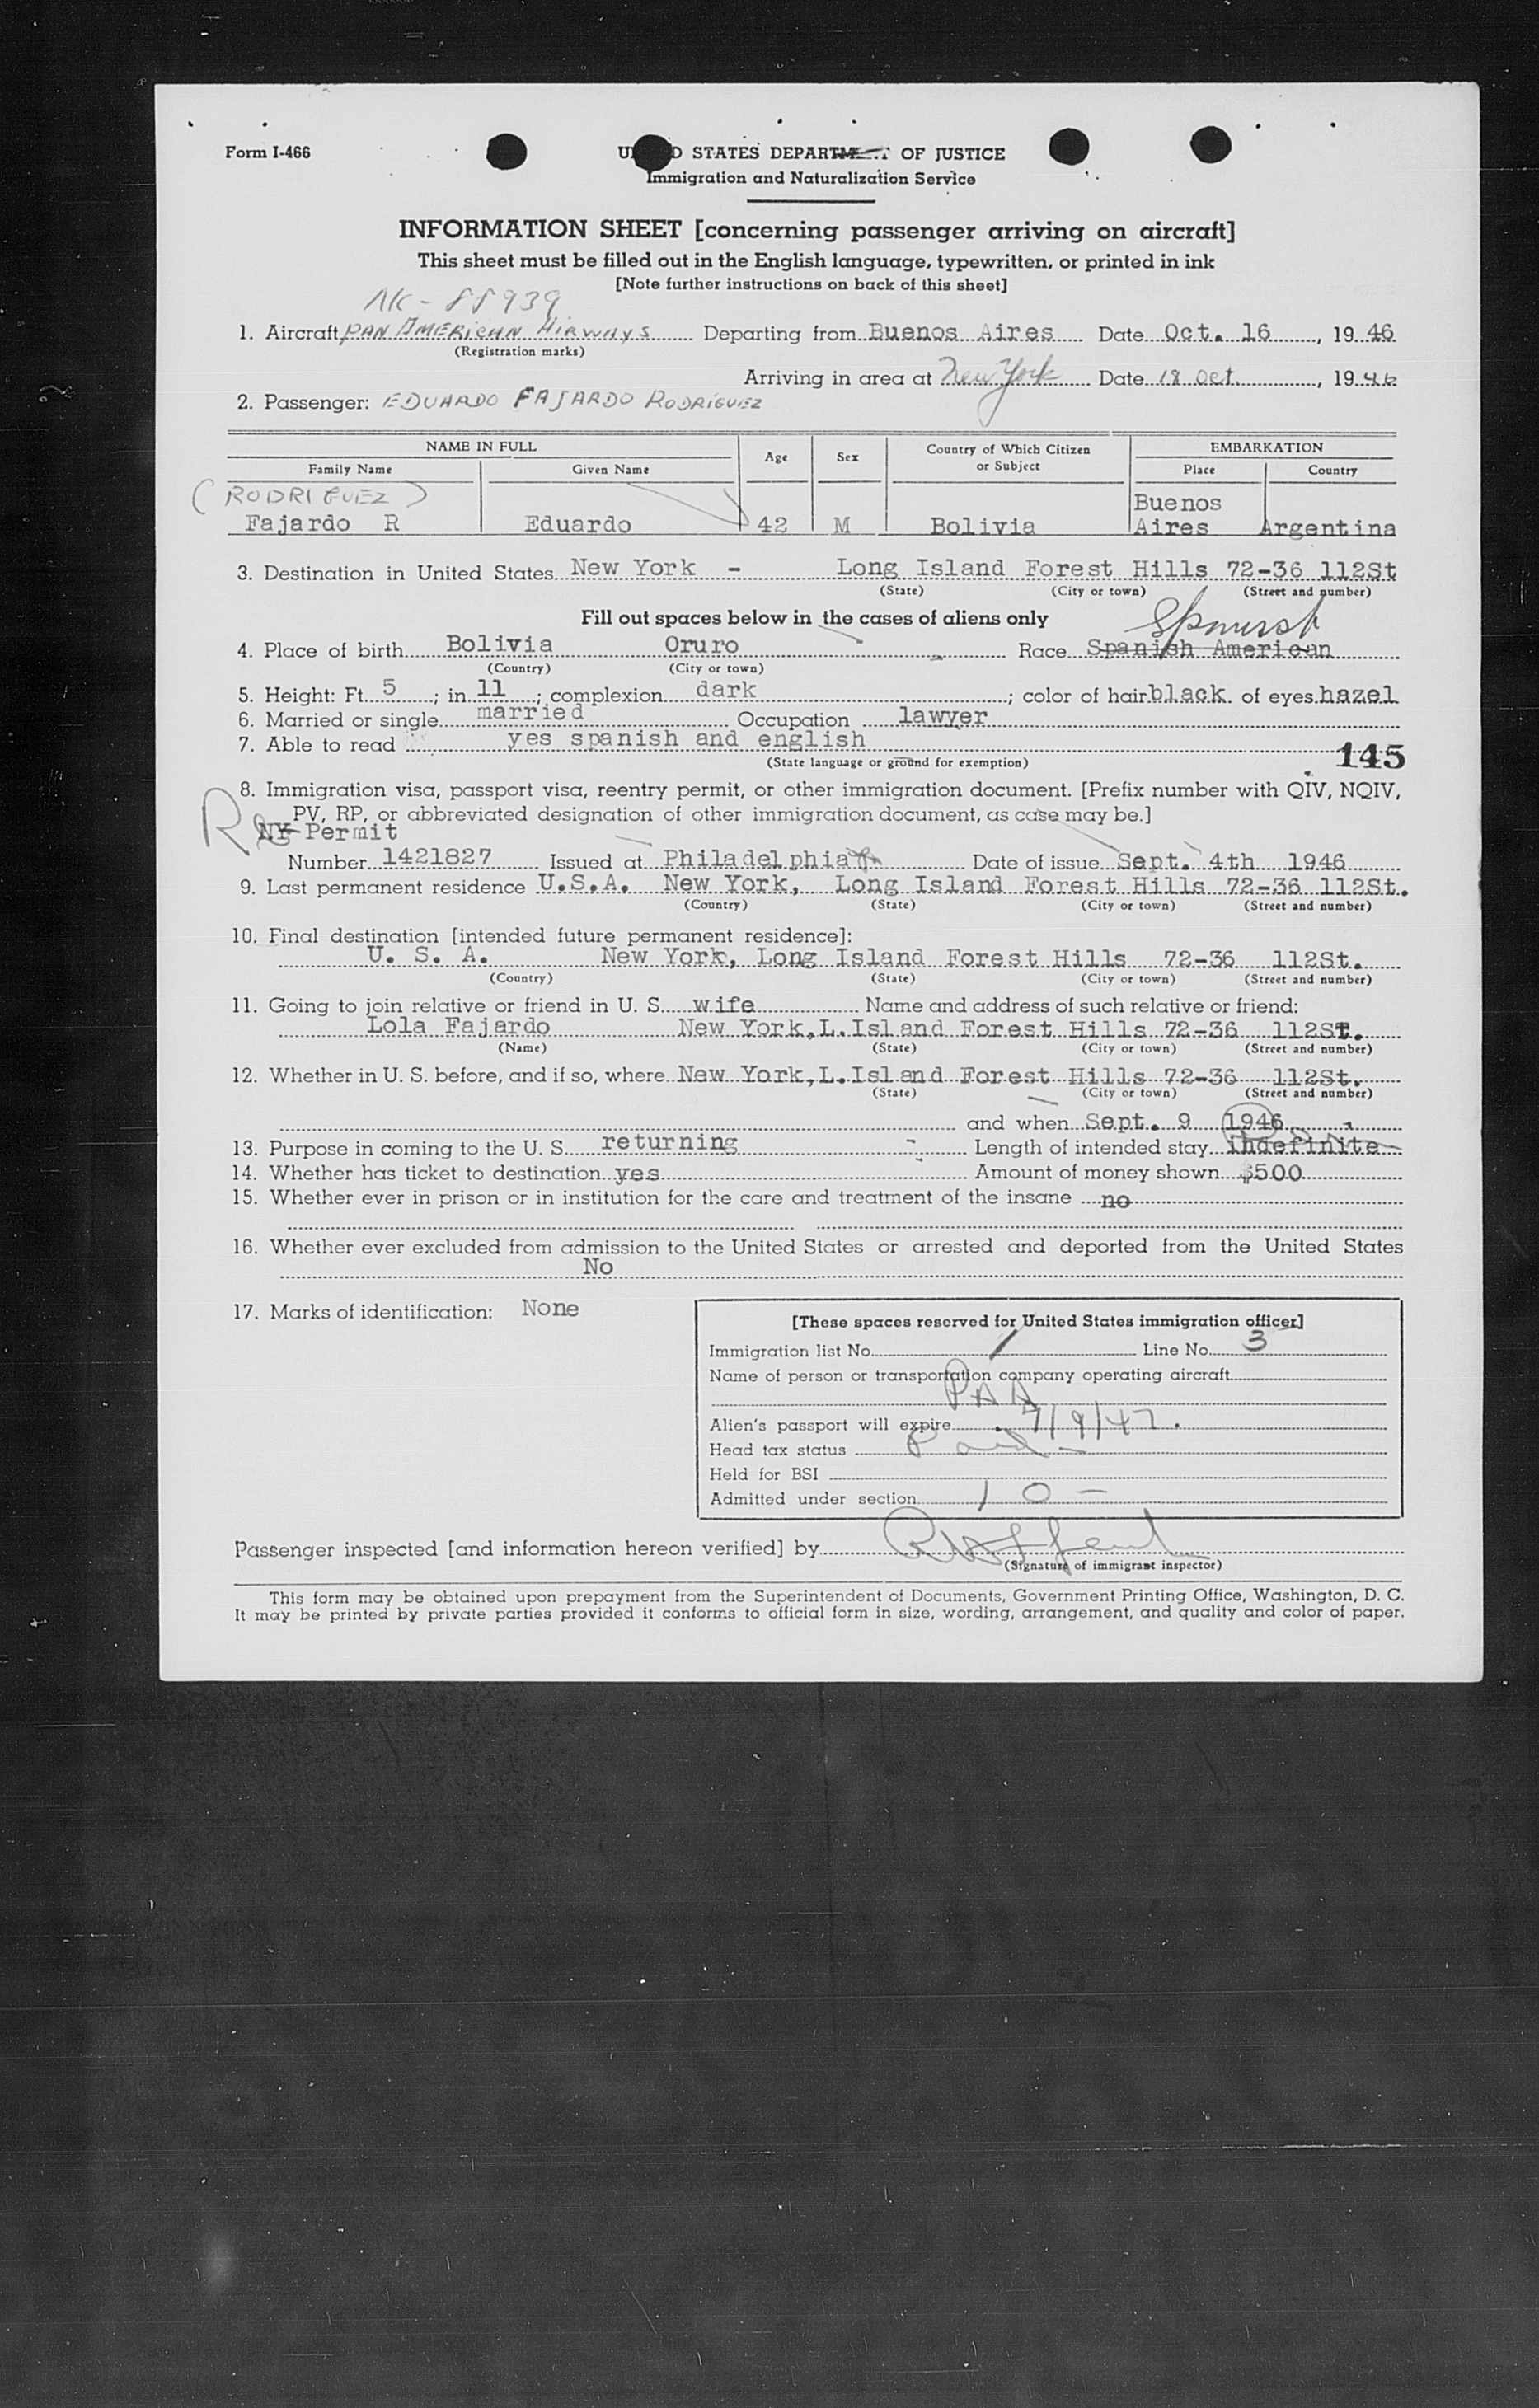 Form I-466
UNITED STATES DEPARTMENT OF JUSTICE
Immigration and Naturalization Service
INFORMATION SHEET [concerning passenger arriving on aircraft]
This sheet must be filled out in the English language, typewritten, or printed in ink
[Note further instructions on back of this sheet]
88939
1. Aircraft PAN AMERICAN AIRWAYS Departing from Buenos Aires Date Oct. 16, 19 46
(Registration marks)
Arriving in area at New York Date 18 Oct., 19 46
2. Passenger: EDUARDO FAJARDO RODRIGUEZ
NAME IN FULL Age Sex Country of Which Citizen or Subject EMBARKATION
Family Name Given Name Place Country
(RODRIGUEZ) Buenos
Fajardo R Eduardo 42 M Bolivia Aires Argentina
3. Destination in United States New York - Long Island Forest Hills 72-36 112St
(State) (City or town) (Street and number)
Fill out spaces below in the cases of aliens only
Spanish
4. Place of birth Bolivia Oruro Race Spanish American
(Country) (City or town)
5. Height: Ft. 5; in. 11; complexion dark; color of hair black of eyes hazel
6. Married or single married Occupation lawyer
7. Able to read yes spanish and english
(State language or ground for exemption) 145
8. Immigration visa, passport visa, reentry permit, or other immigration document. [Prefix number with QIV, NQIV,
PV, RP, or abbreviated designation of other immigration document, as case may be.]
Re NY Permit
Number 1421827 Issued at Philadelphia Date of issue Sept. 4th 1946
9. Last permanent residence U.S.A. New York, Long Island Forest Hills 72-36 112St.
(Country) (State) (City or town) (Street and number)
10. Final destination [intended future permanent residence]:
U. S. A. New York, Long Island Forest Hills 72-36 112St.
(Country) (State) (City or town) (Street and number)
11. Going to join relative or friend in U. S. wife Name and address of such relative or friend:
Lola Fajardo New York, L.Island Forest Hills 72-36 112St.
(Name) (State) (City or town) (Street and number)
12. Whether in U. S. before, and if so, where New York, L.Island Forest Hills 72-36 112St.
(State) (City or town) (Street and number)
and when Sept. 9 1946
13. Purpose in coming to the U. S. returning Length of intended stay indefinite
14. Whether has ticket to destination yes Amount of money shown $500
15. Whether ever in prison or in institution for the care and treatment of the insane no
16. Whether ever excluded from admission to the United States or arrested and deported from the United States
No
17. Marks of identification: None
[These spaces reserved for United States immigration officer]
Immigration list No. 1 Line No. 3
Name of person or transportation company operating aircraft
PAA
Alien's passport will expire 7/9/47.
Head tax status Paid
Held for BSI
Admitted under section 10 -
Passenger inspected [and information hereon verified] by
(Signature of immigrant inspector)
This form may be obtained upon prepayment from the Superintendent of Documents, Government Printing Office, Washington, D. C.
It may be printed by private parties provided it conforms to official form in size, wording, arrangement, and quality and color of paper.